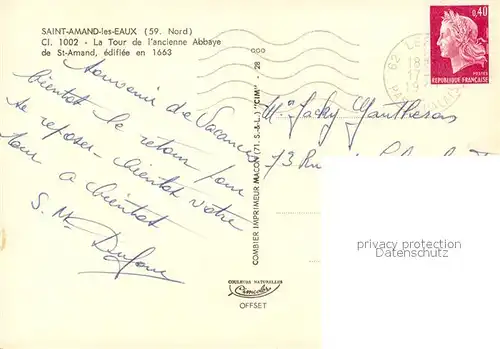 SAINT-AMAND-les-EAUX (59. Nord)
Cl. 1002 - La Tour de l'ancienne Abbaye
de St-Amand, édifiée en 1663
0,40
POSTES
REPUBLIQUE FRANÇAISE
62
18
17
19
Souvenir de Vacances
bientôt le retour pour
se reposer - bientôt votre
tour a bientôt
S. M. Dufour
Jacky
73 Rue
COMBIER IMPRIMEUR MACON (71. S.-&-L.) "CIM" - 28
privacy protection
Datenschutz
COULEURS NATURELLES
Cimcolor
OFFSET